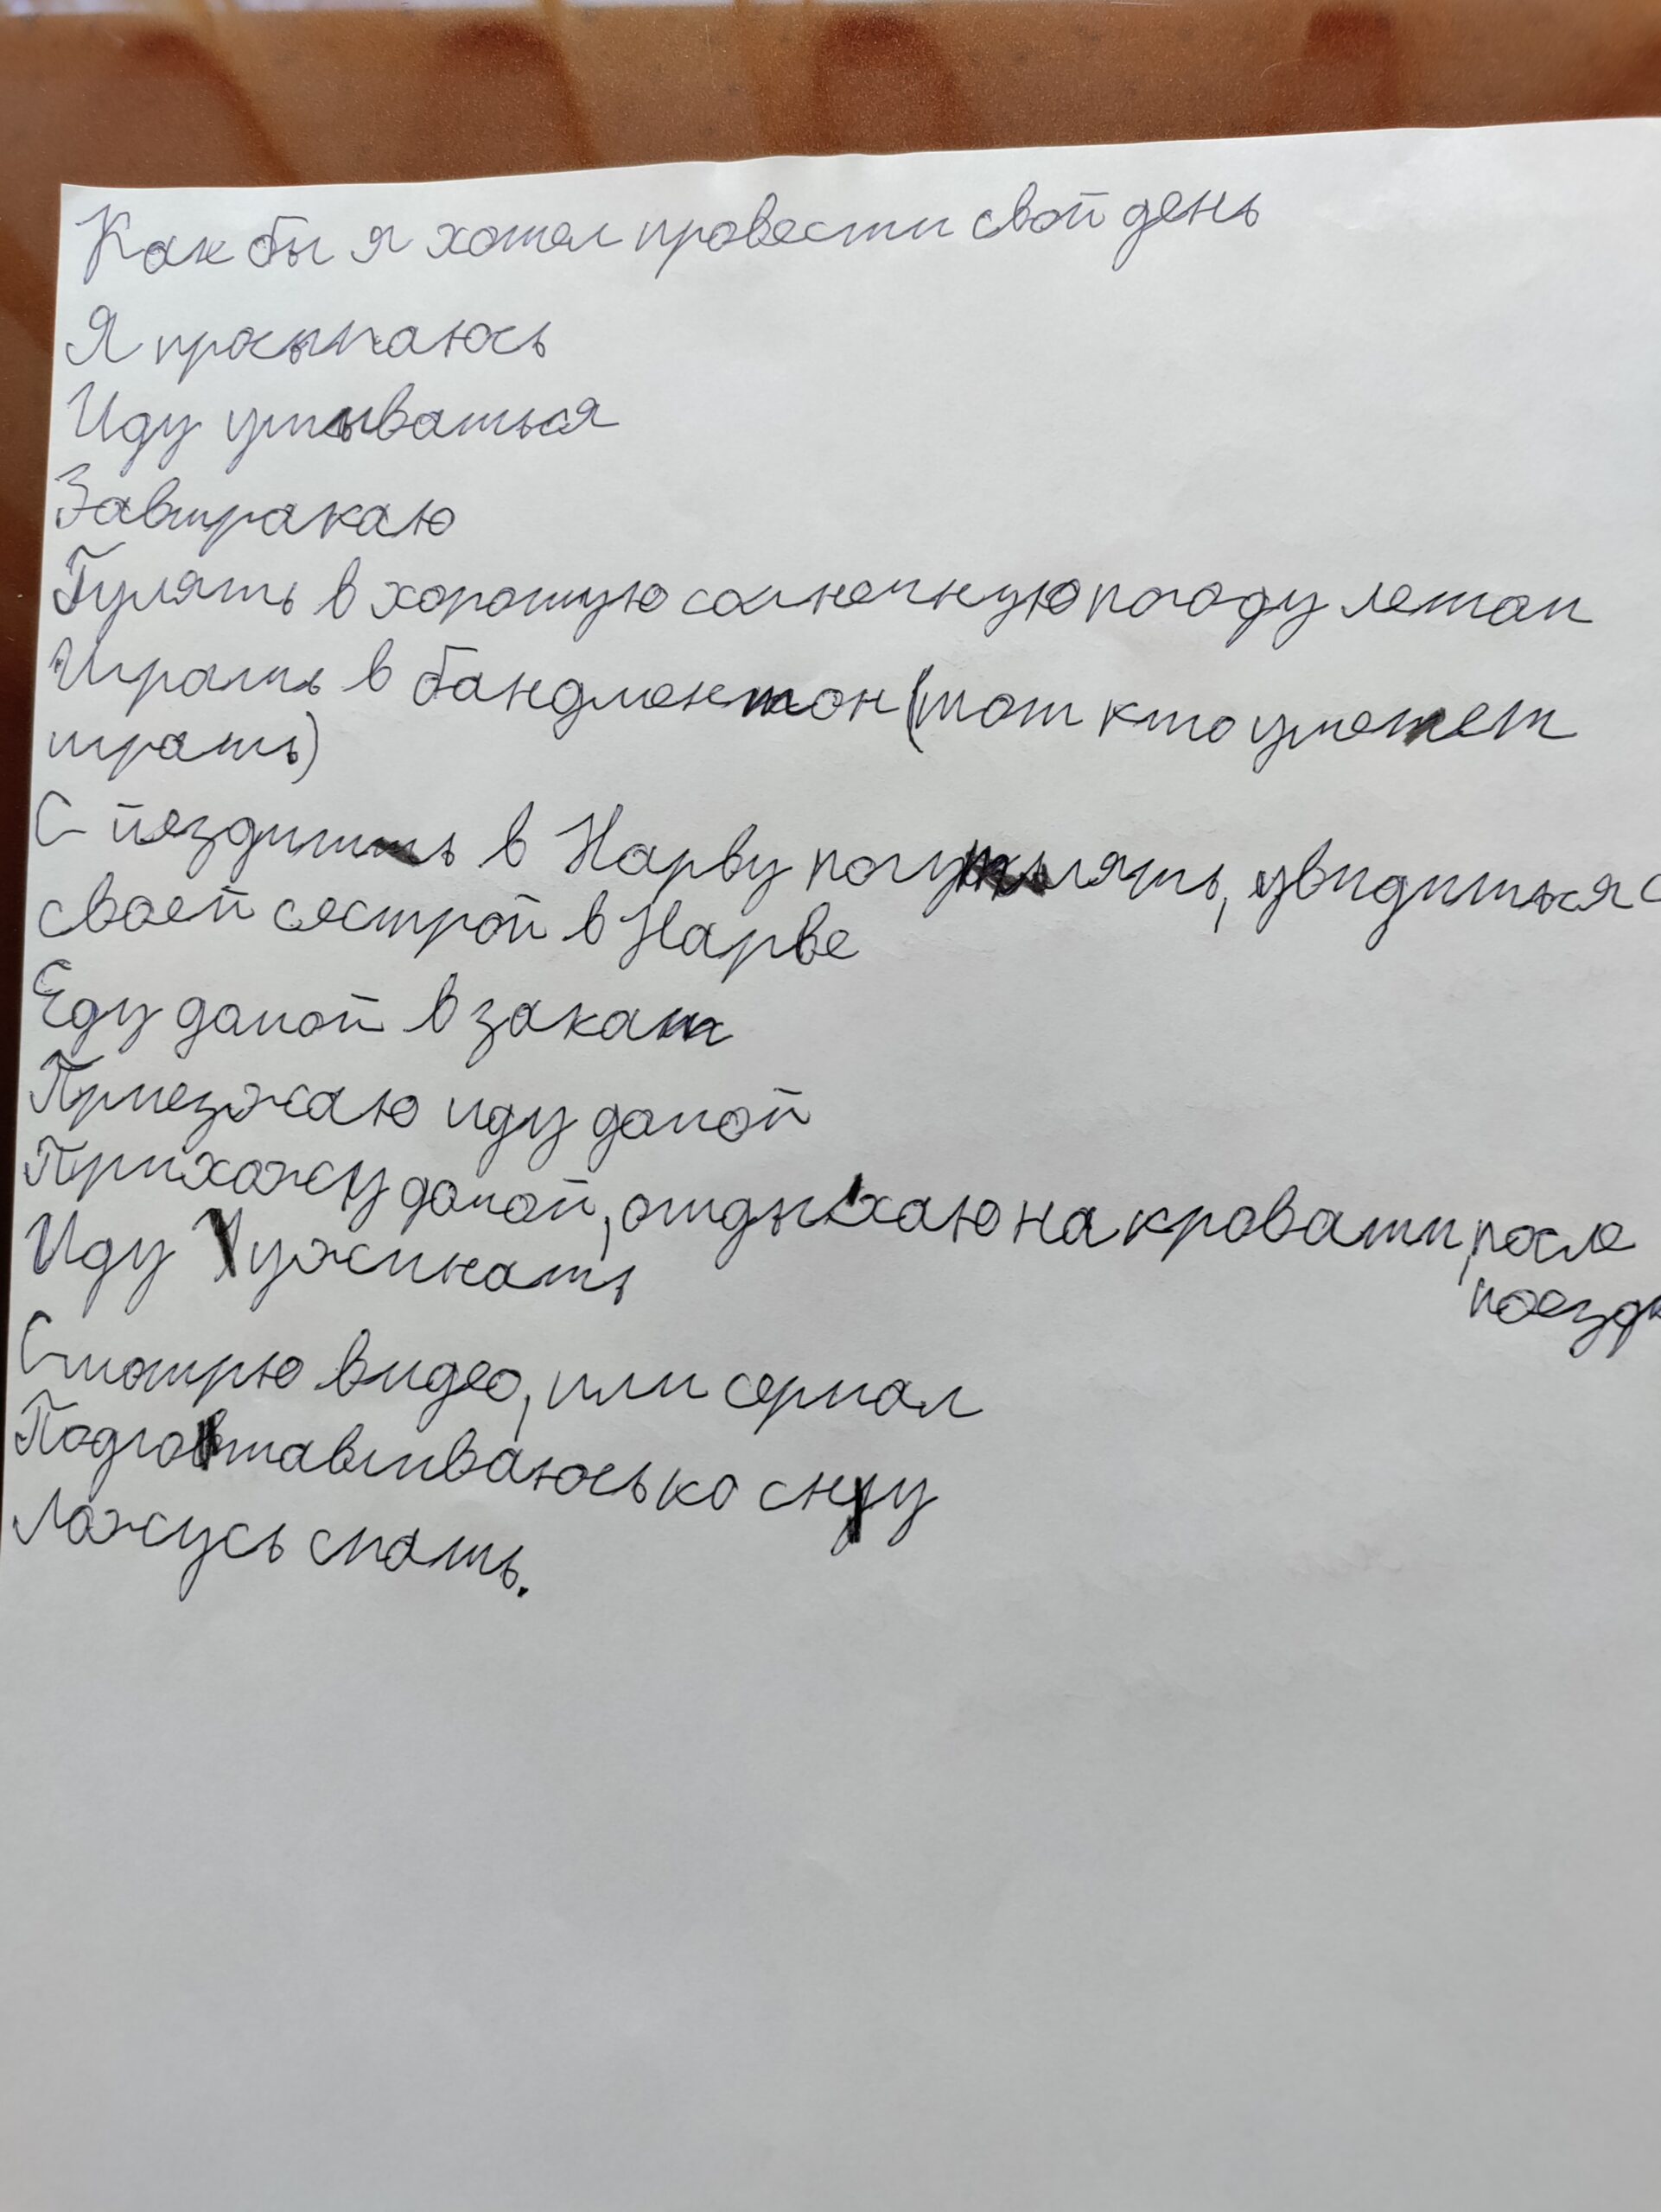 Как бы я хотел провести свой день
Я просыпаюсь
Иду умываться
Завтракаю
Гулять в хорошую солнечную погоду летом
Играть в бандментон (тот кто умеет
играть)
С йездить в Нарву погулять, увидиться с
своей сестрой в Нарве
Еду домой в закат
Приезжаю иду домой
Прихожу домой, отдыхаю на кровати, после
поездк
Иду ужинать
Смотрю видео, или сериал
Подготавливаюсь ко сну
Ложусь спать.